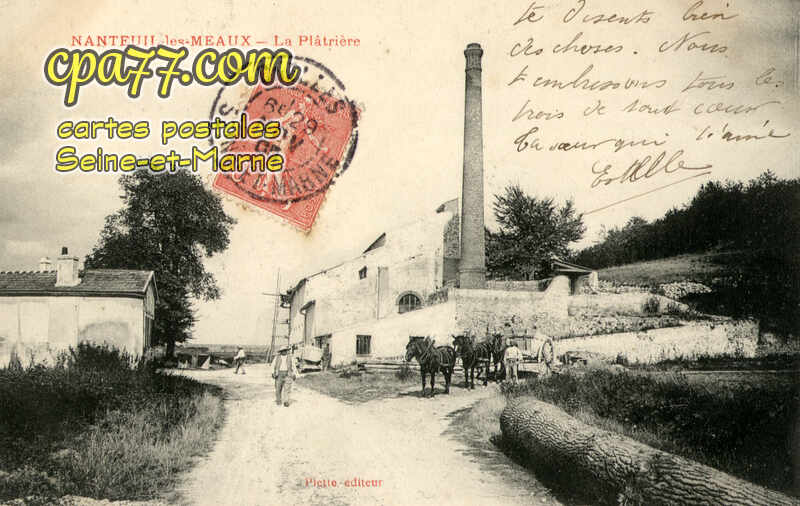 NANTEUIL-les-MEAUX — La Plâtrière
cpa77.com
cartes postales
Seine-et-Marne
te disents bien
des choses. Nous
t'embrassons tous les
trois de tout cœur
Ta sœur qui t'aime
Estelle
Plette-éditeur